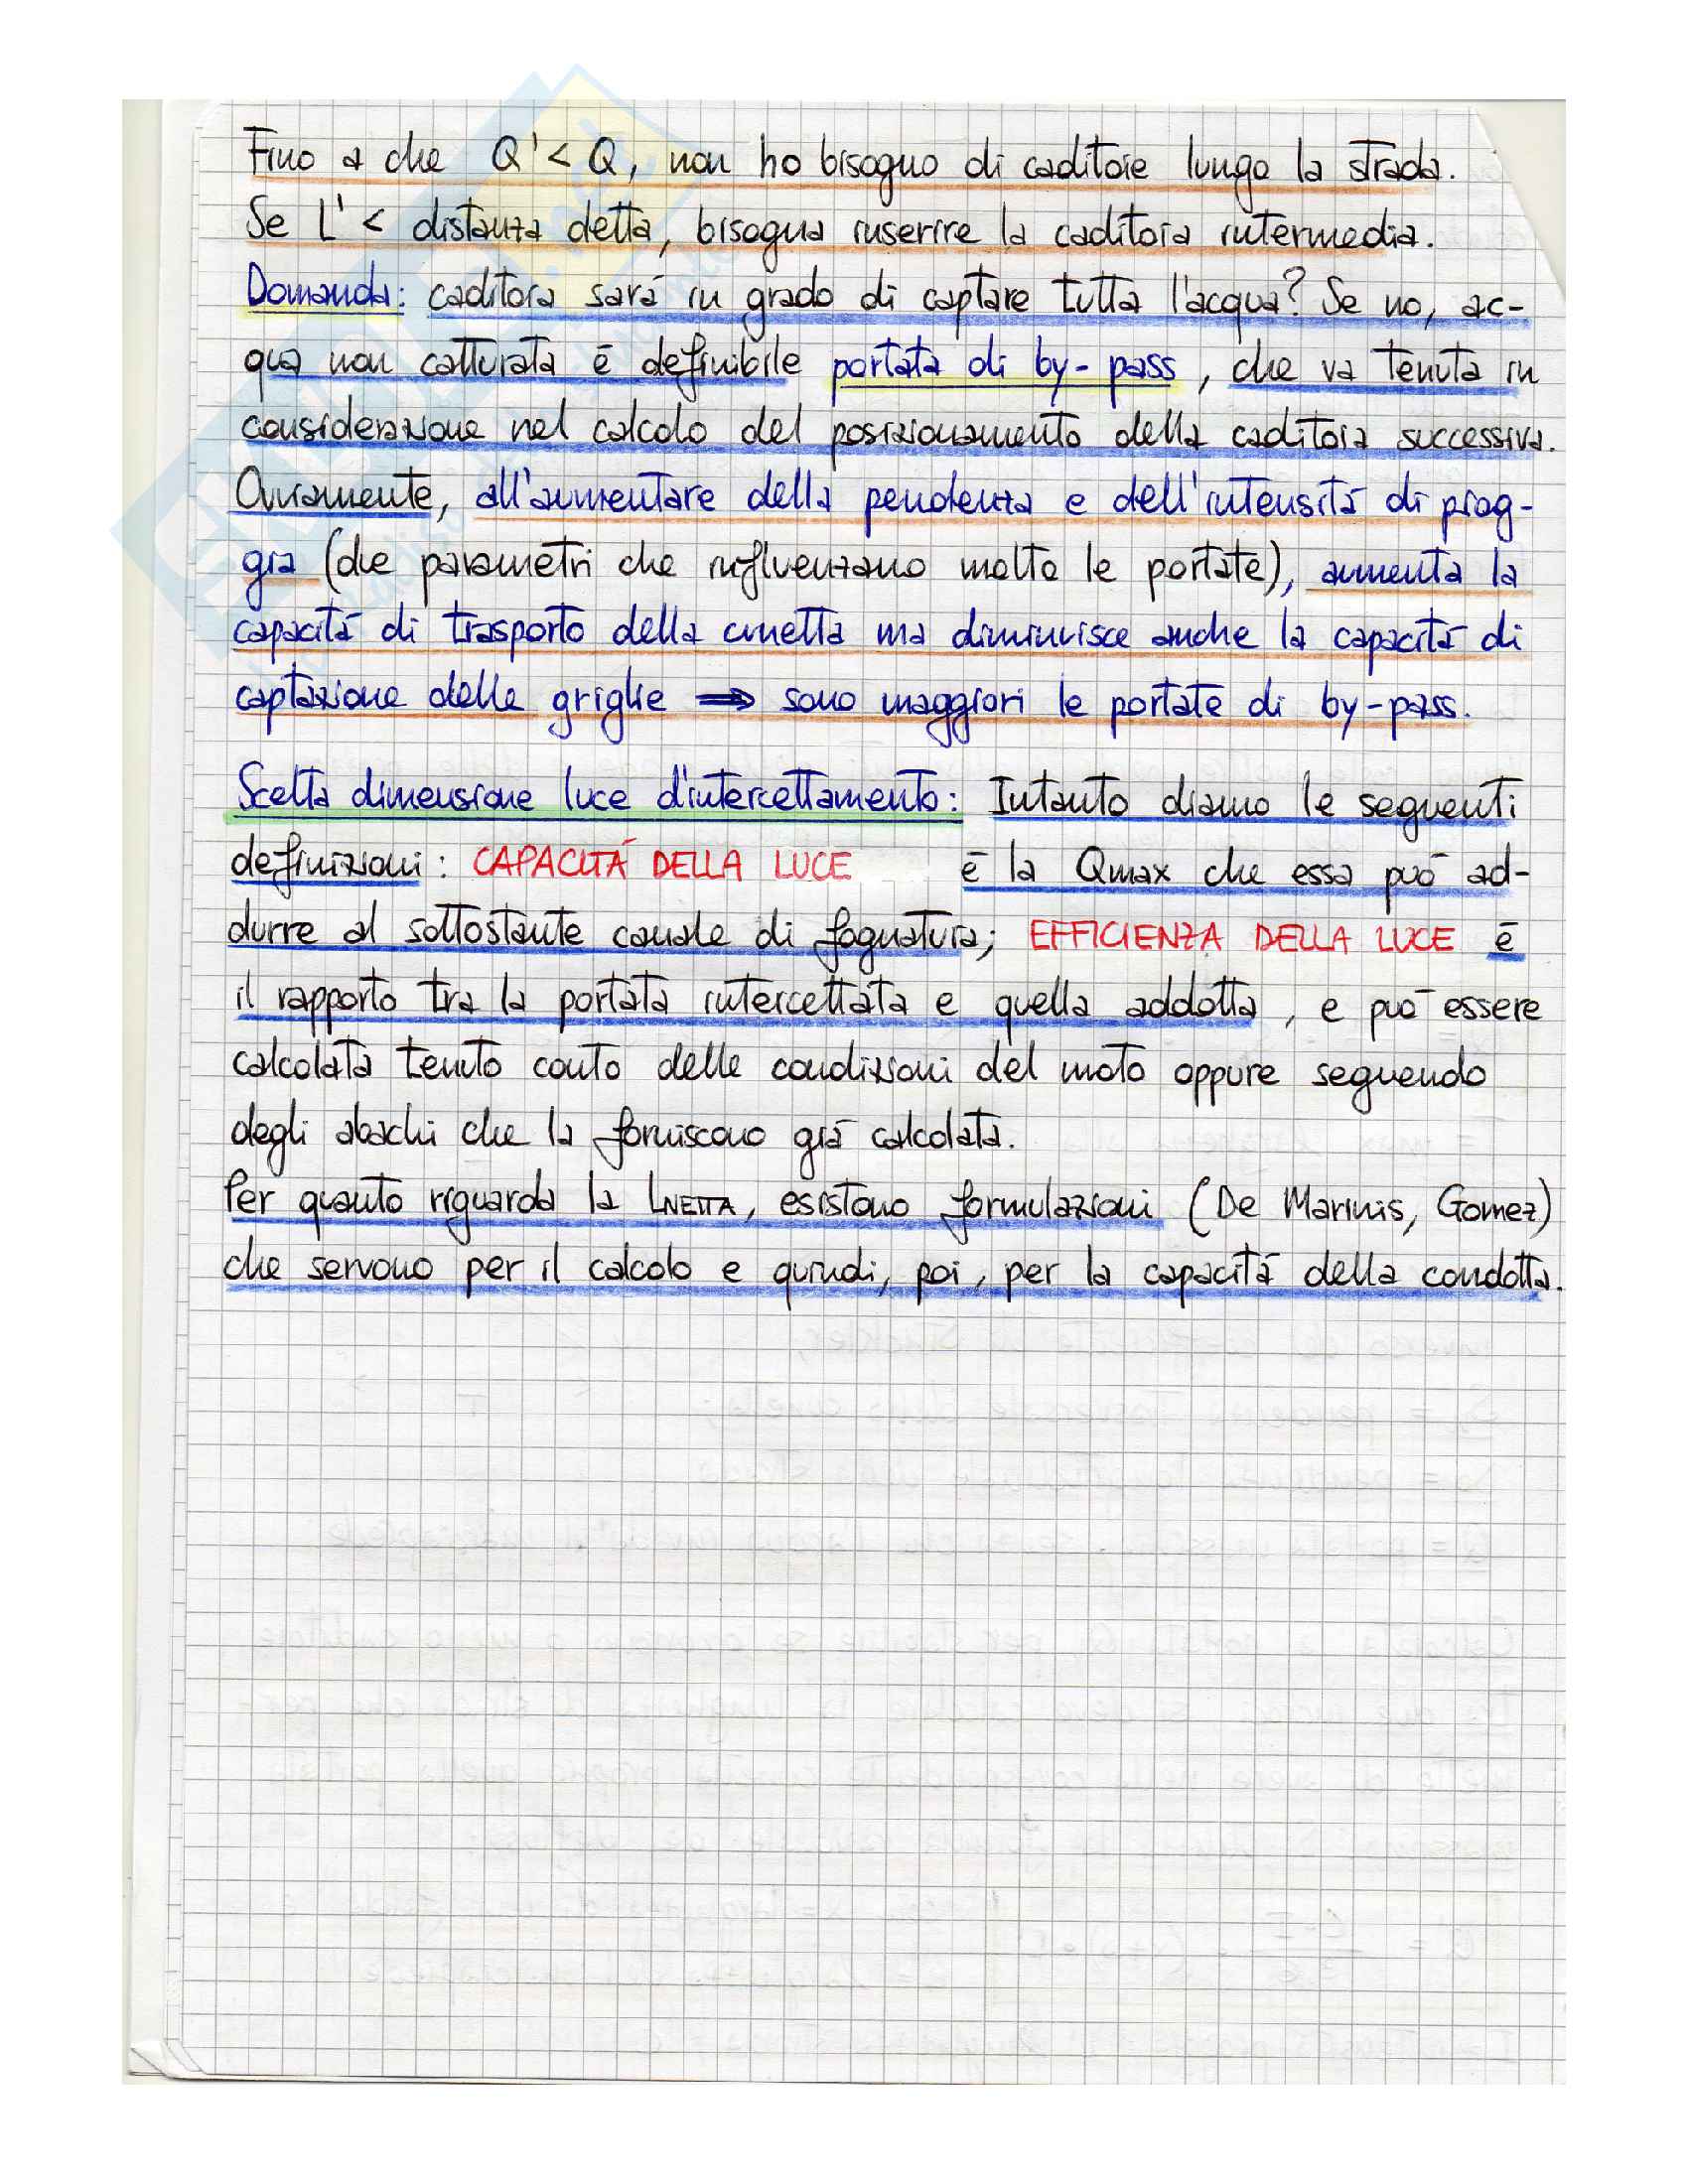 Fino a che Q' < Q, non ho bisogno di caditoie lungo la strada.
Se L' < distanza detta, bisogna inserire la caditoia intermedia.
Domanda: caditoia sarà in grado di captare tutta l'acqua? Se no, ac-
qua non catturata è definibile portata di by-pass, che va tenuta in
considerazione nel calcolo del posizionamento della caditoia successiva.
Ovviamente, all'aumentare della pendenza e dell'intensità di piog-
gia (due parametri che influenzano molto le portate), aumenta la
capacità di trasporto della cunetta ma diminuisce anche la capacità di
captazione delle griglie ⇒ sono maggiori le portate di by-pass.
Scelta dimensione luce d'intercettamento: Intanto diamo le seguenti
definizioni: CAPACITÀ DELLA LUCE è la Qmax che essa può ad-
durre al sottostante canale di fognatura; EFFICIENZA DELLA LUCE è
il rapporto tra la portata intercettata e quella addotta, e può essere
calcolata tenuto conto delle condizioni del moto oppure seguendo
degli abachi che la forniscono già calcolata.
Per quanto riguarda la LNETTA, esistono formulazioni (De Marinis, Gomez)
che servono per il calcolo e quindi, poi, per la capacità della condotta.